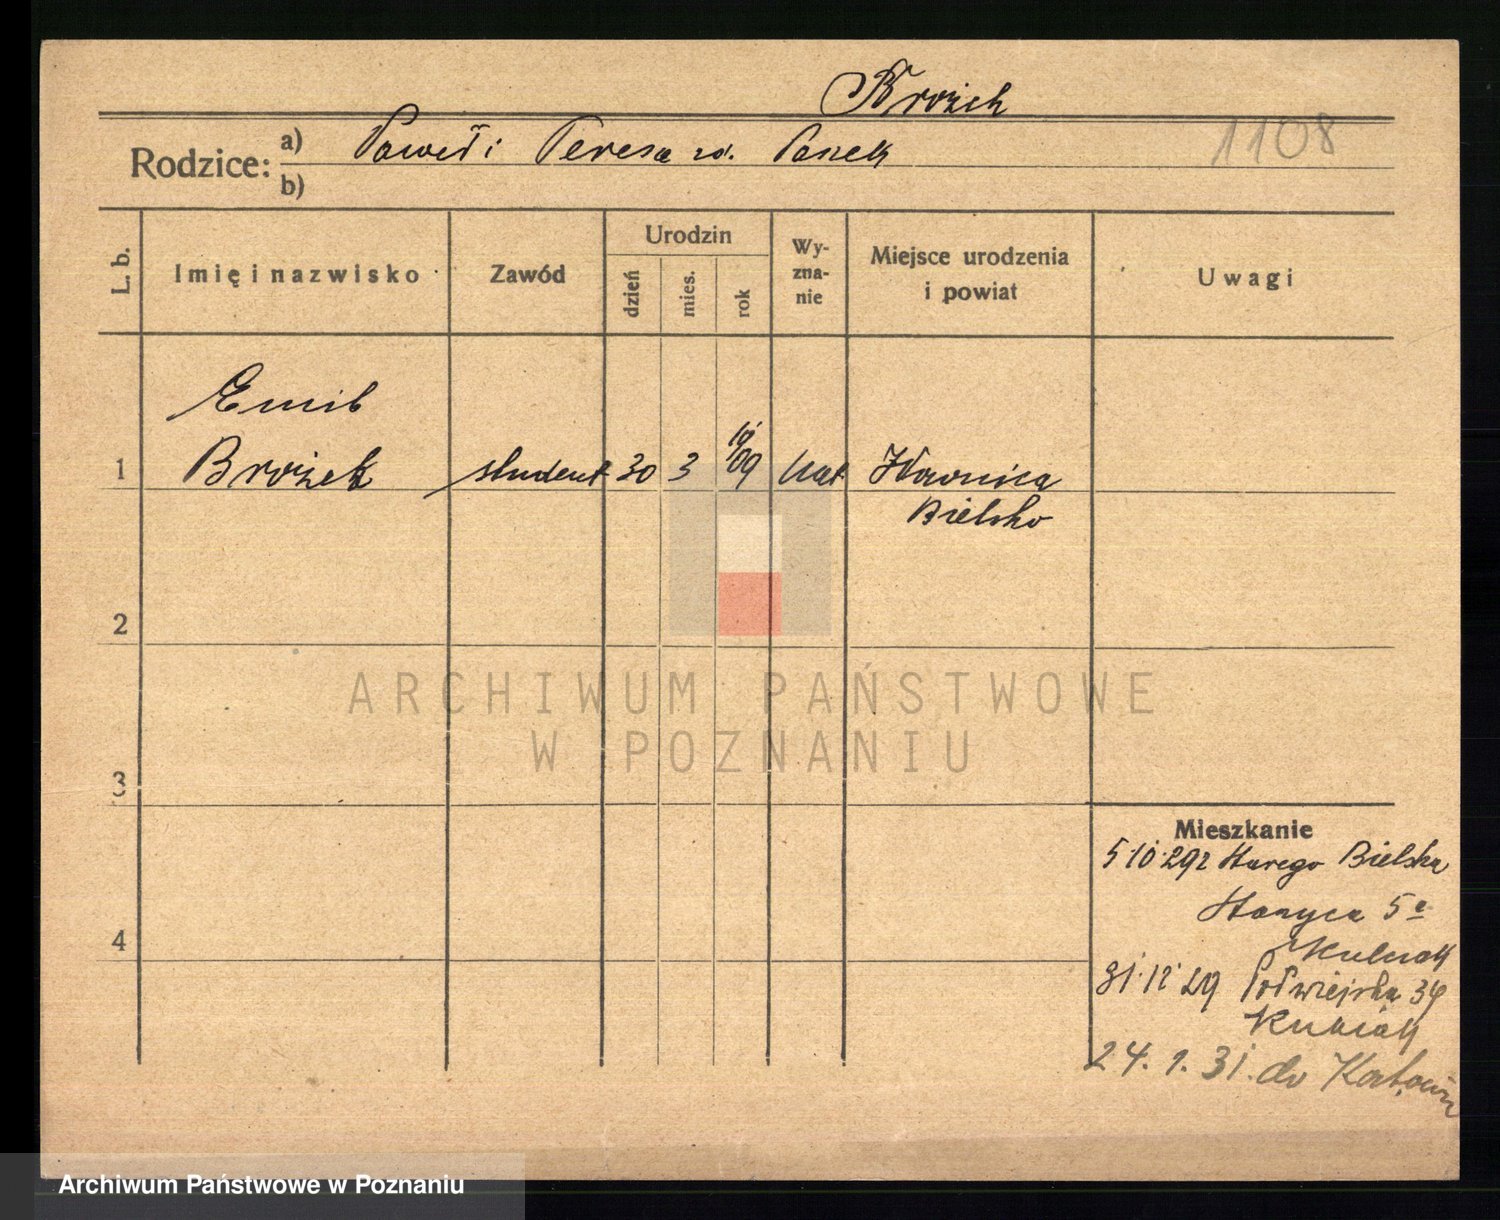 Brożek
1108
Rodzice: a) Paweł i Teresa zd. Pasek
b)
L. b.
Imię i nazwisko
Zawód
Urodzin
dzień
mies.
rok
Wy-
zna-
nie
Miejsce urodzenia
i powiat
Uwagi
Emil
1 Brożek student 30 3 19/09 kat.
Bielsko
2
3
4
Mieszkanie
5.10.29 z Starego Bielska
5a
31.12.29 Półwiejska 34
Kubiak
24.1.31. do Katowic
ARCHIWUM PAŃSTWOWE
W POZNANIU
Archiwum Państwowe w Poznaniu